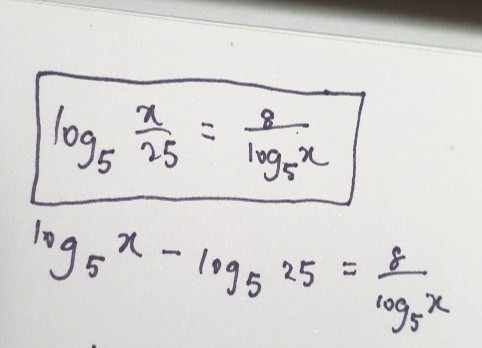 log₅ x/25 = 8/log₅x
log₅ x - log₅ 25 = 8/log₅x